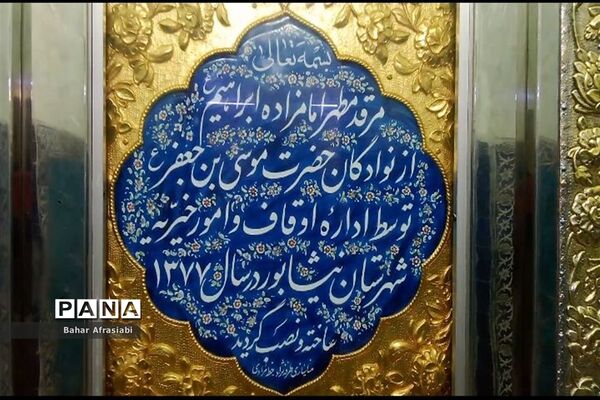 بسمه تعالی
مرقد مطهر امامزاده ابراهیم ع
از نوادگان حضرت موسی بن جعفر ع
توسط اداره اوقاف و امور خیریه
شهرستان نیشابور در سال ۱۳۷۷
ساخته و نصب گردید
PANA
Bahar Afrasiabi